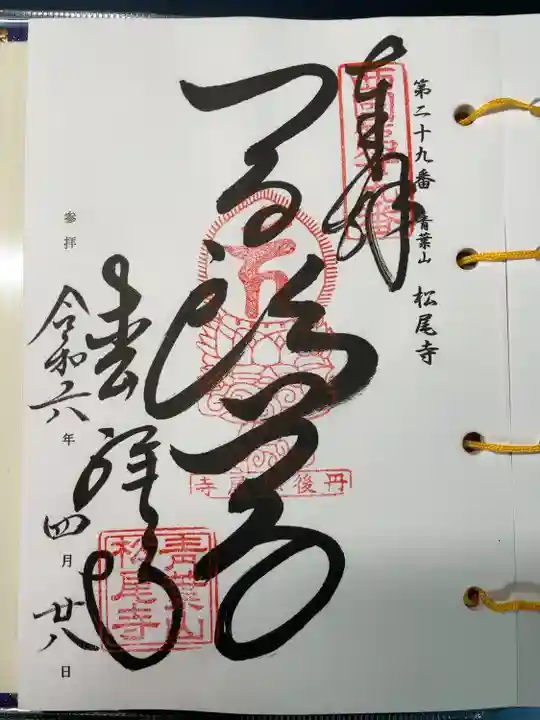 第二十九番 青葉山 松尾寺
奉拝
西国第廿九番
馬頭尊
丹後 松尾寺
青葉山
松尾寺
参拝
令和六年四月廿八日